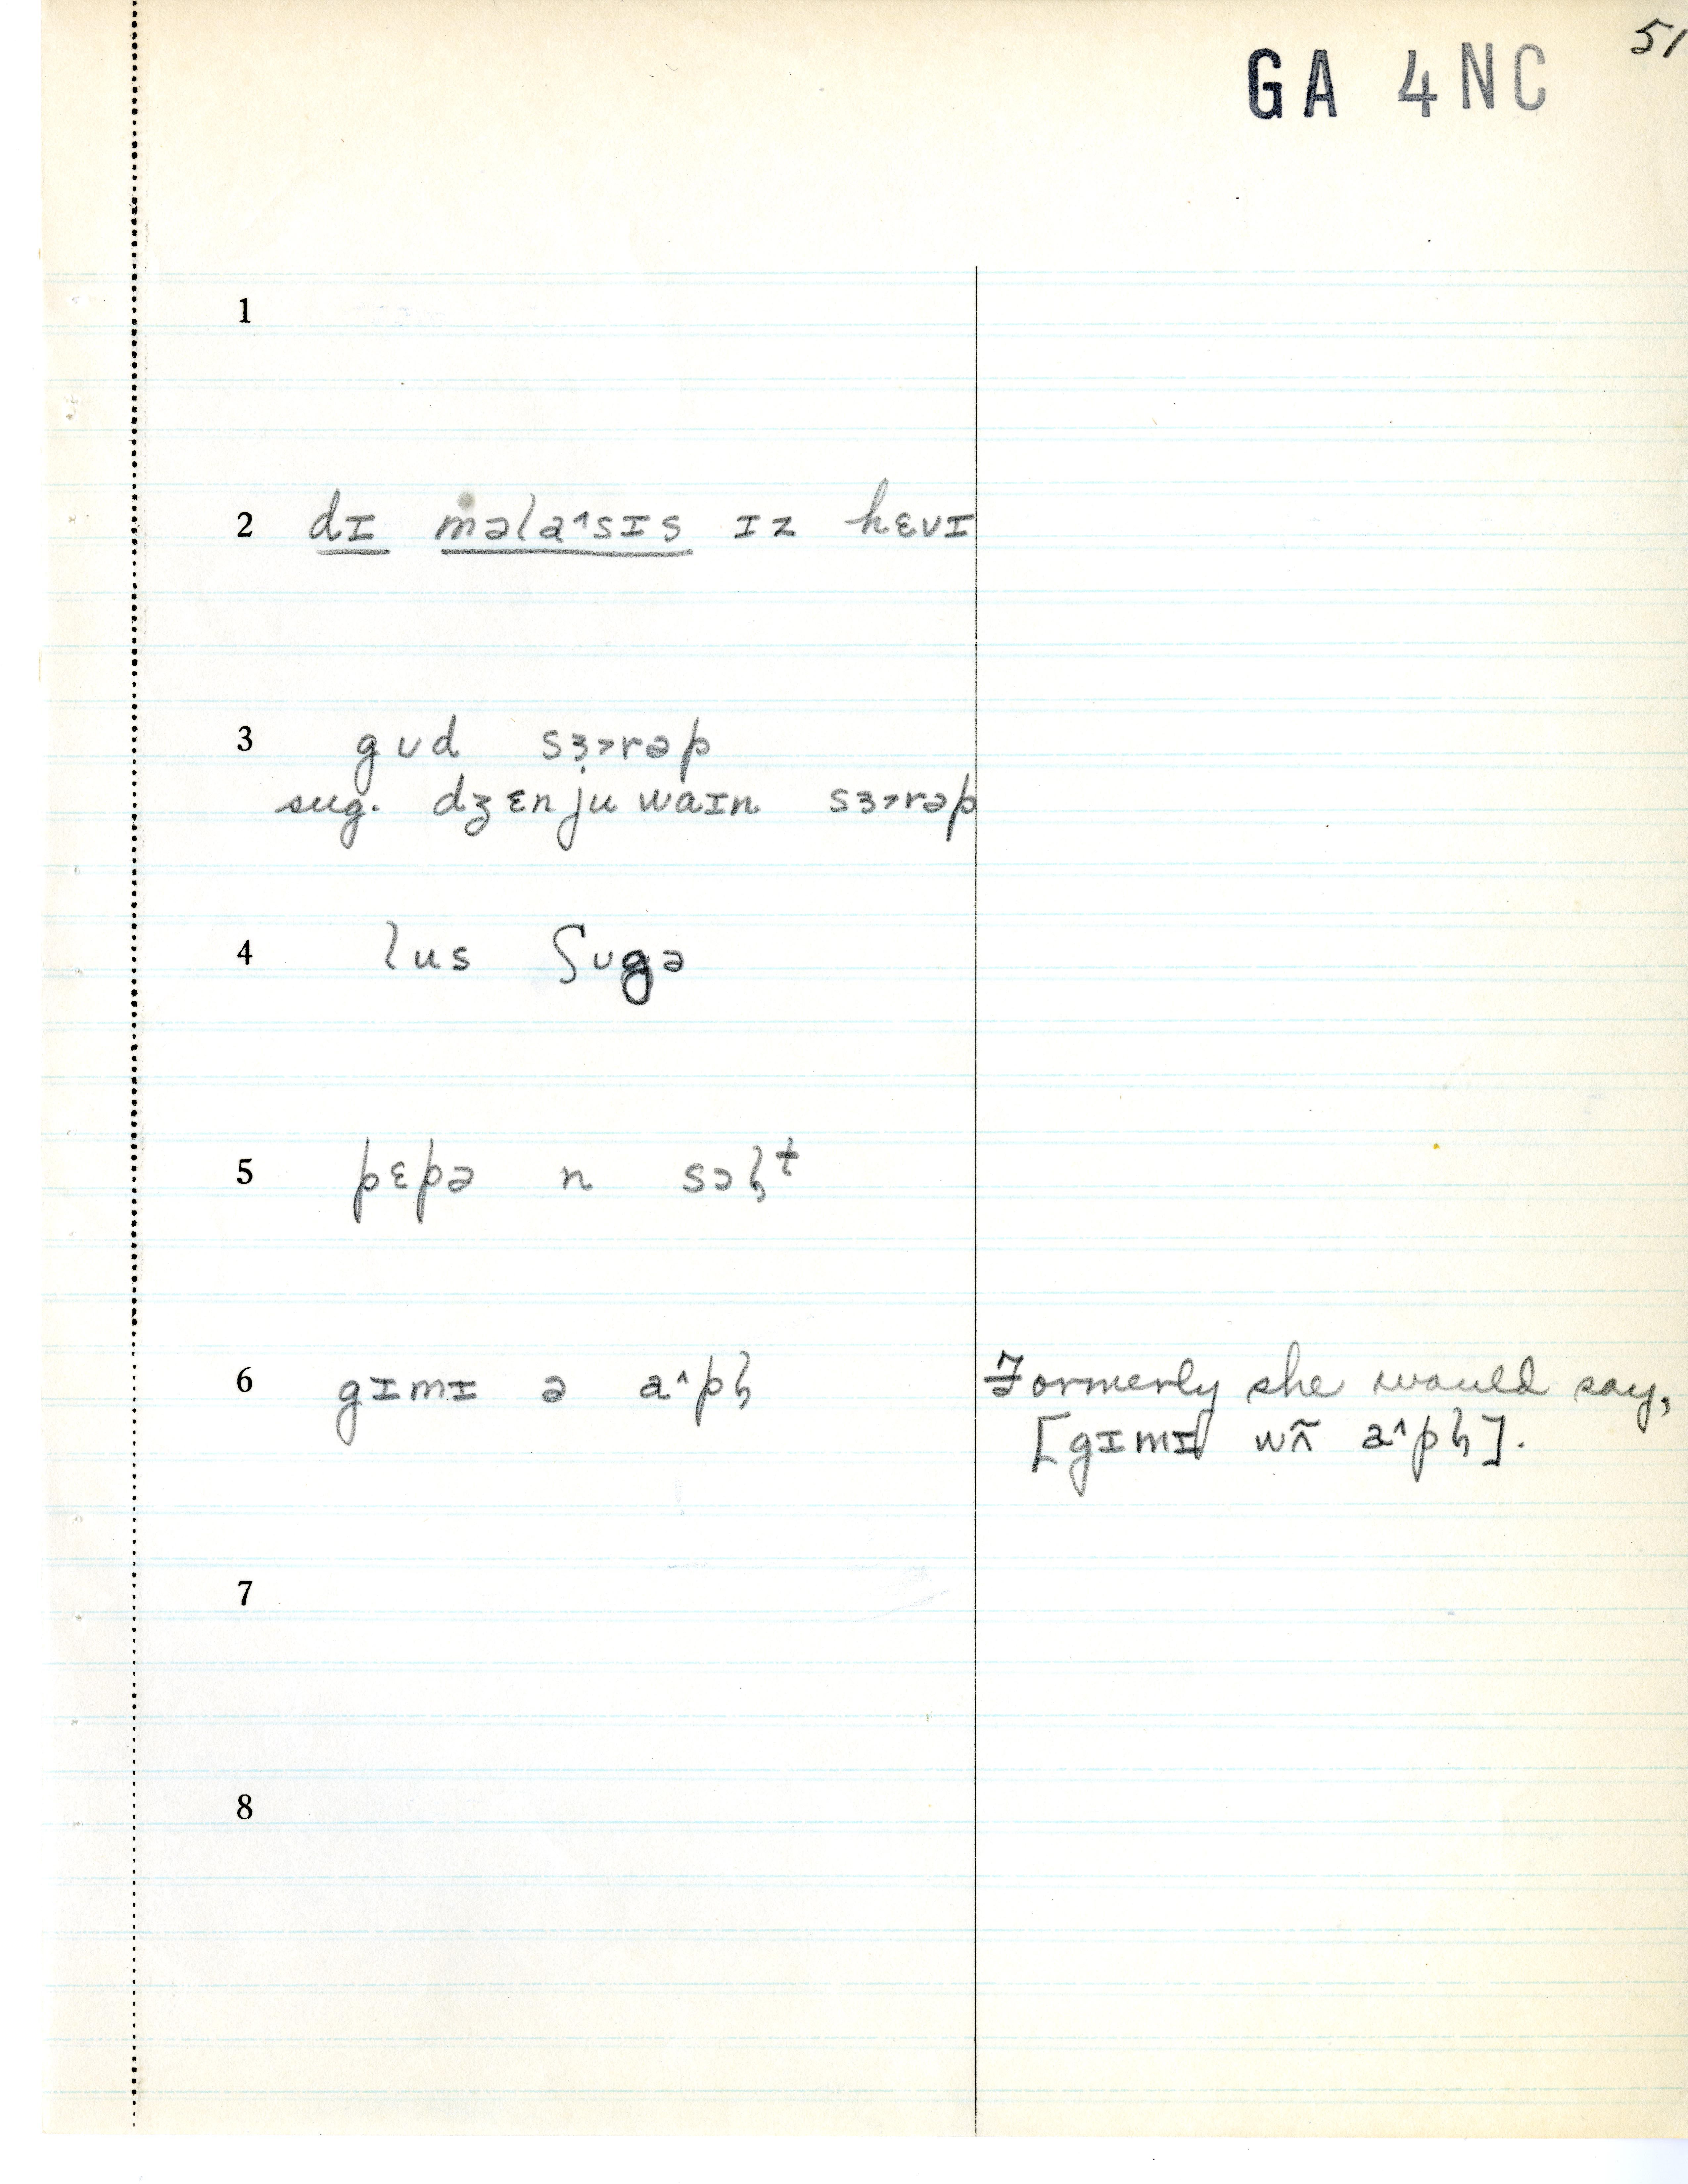 51
GA 4NC
1
2 dɪ məla˄sɪs ɪz hɛvɪ
3 gʊd sɜ̣˃rəp
sug. dʒɛnjuwaɪn sɜ˃rəp
4 lus ʃʊgə
5 pɛpə n səl̥ᵗ
6 gɪmɪ ə a˄pl̥ Formerly she would say,
[gɪmɪ wʌ̃ a˄pl̥].
7
8